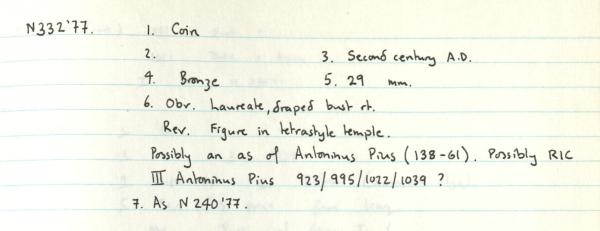 N332'77. 1. Coin
2. 3. Second century A.D.
4. Bronze 5. 29 mm.
6. Obv. Laureate, draped bust rt.
Rev. Figure in tetrastyle temple.
Possibly an as of Antoninus Pius (138-61). Possibly RIC
III Antoninus Pius 923/995/1022/1039 ?
7. As N240'77.